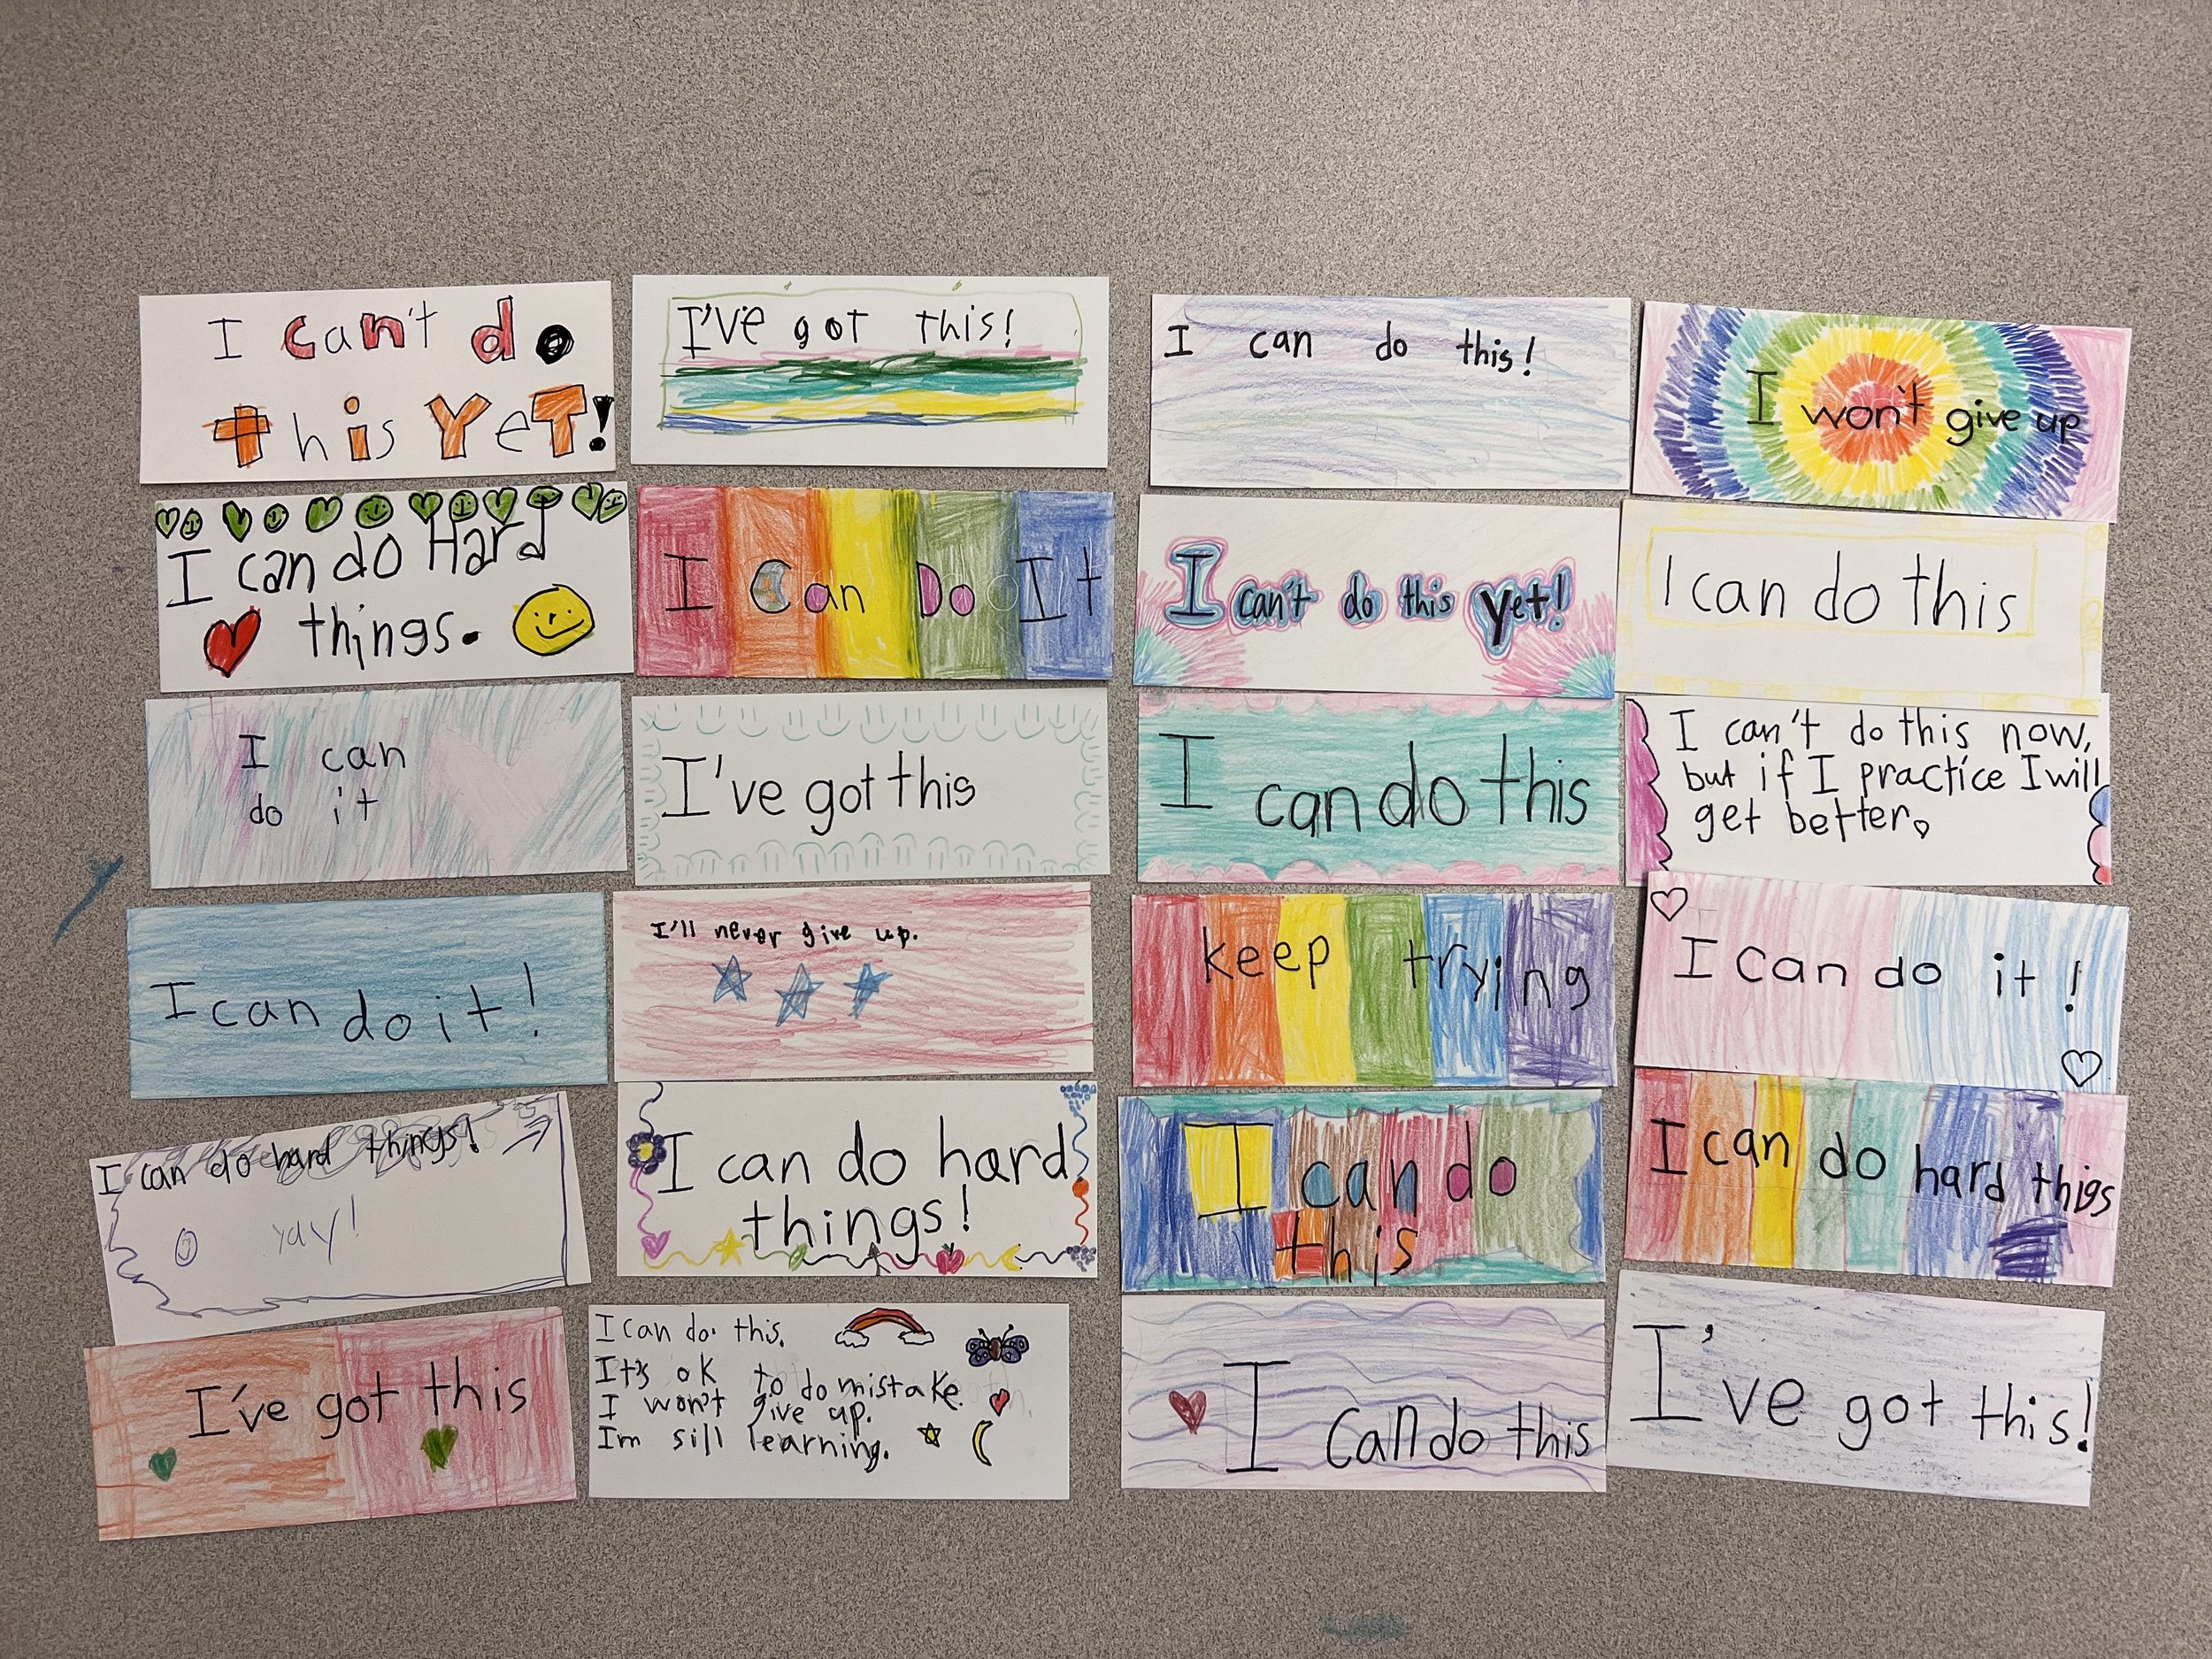 I can't do
this YeT!
I've got this!
I can do this!
I won't give up
I can do Hard
things.
I Can Do It
I can't do this yet!
I can do this
I can
do it
I've got this
I can do this
I can't do this now,
but if I practice I will
get better.
I can do it!
I'll never give up.
keep trying
I can do it!
I can do hard things!
yay!
I can do hard
things!
I can do
this
I can do hard thigs
I've got this
I can do this.
It's ok to do mistake.
I won't give up.
Im sill learning.
I can do this
I've got this!